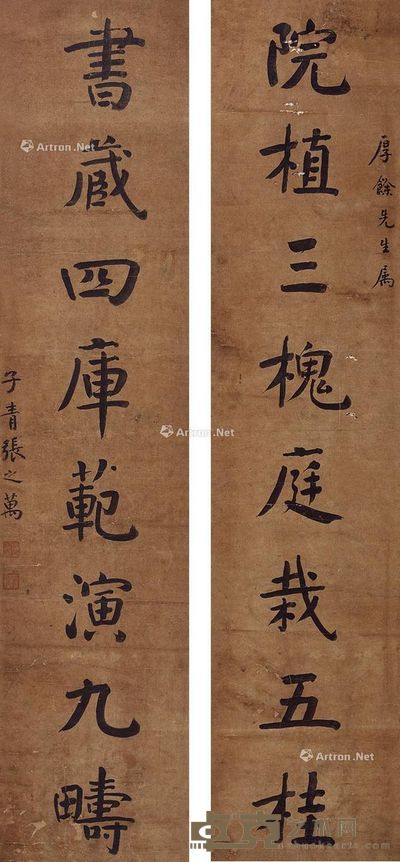 厚餘先生属
院植三槐庭栽五桂
書蔵四庫範演九疇
子青張之萬
Artron.Net
Artron.Net
Artron.Net
Artron.Net